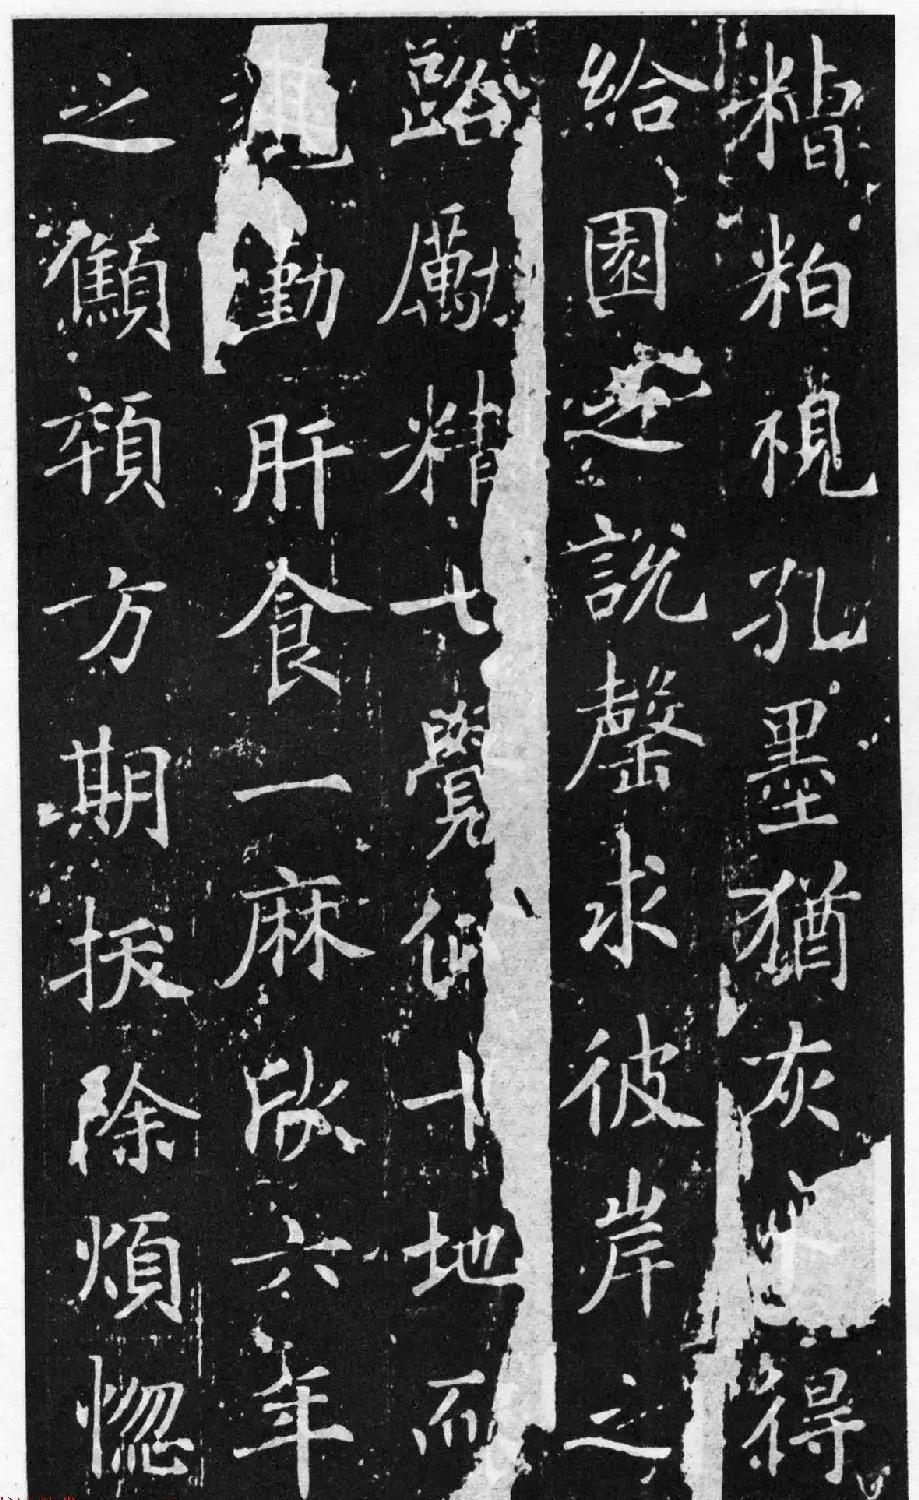 糟粕視孔墨猶灰得
給園之說罄求彼岸之
路勵精七覺仰十地而
勤肝食一麻六年
之顦顇方期拔除煩惚